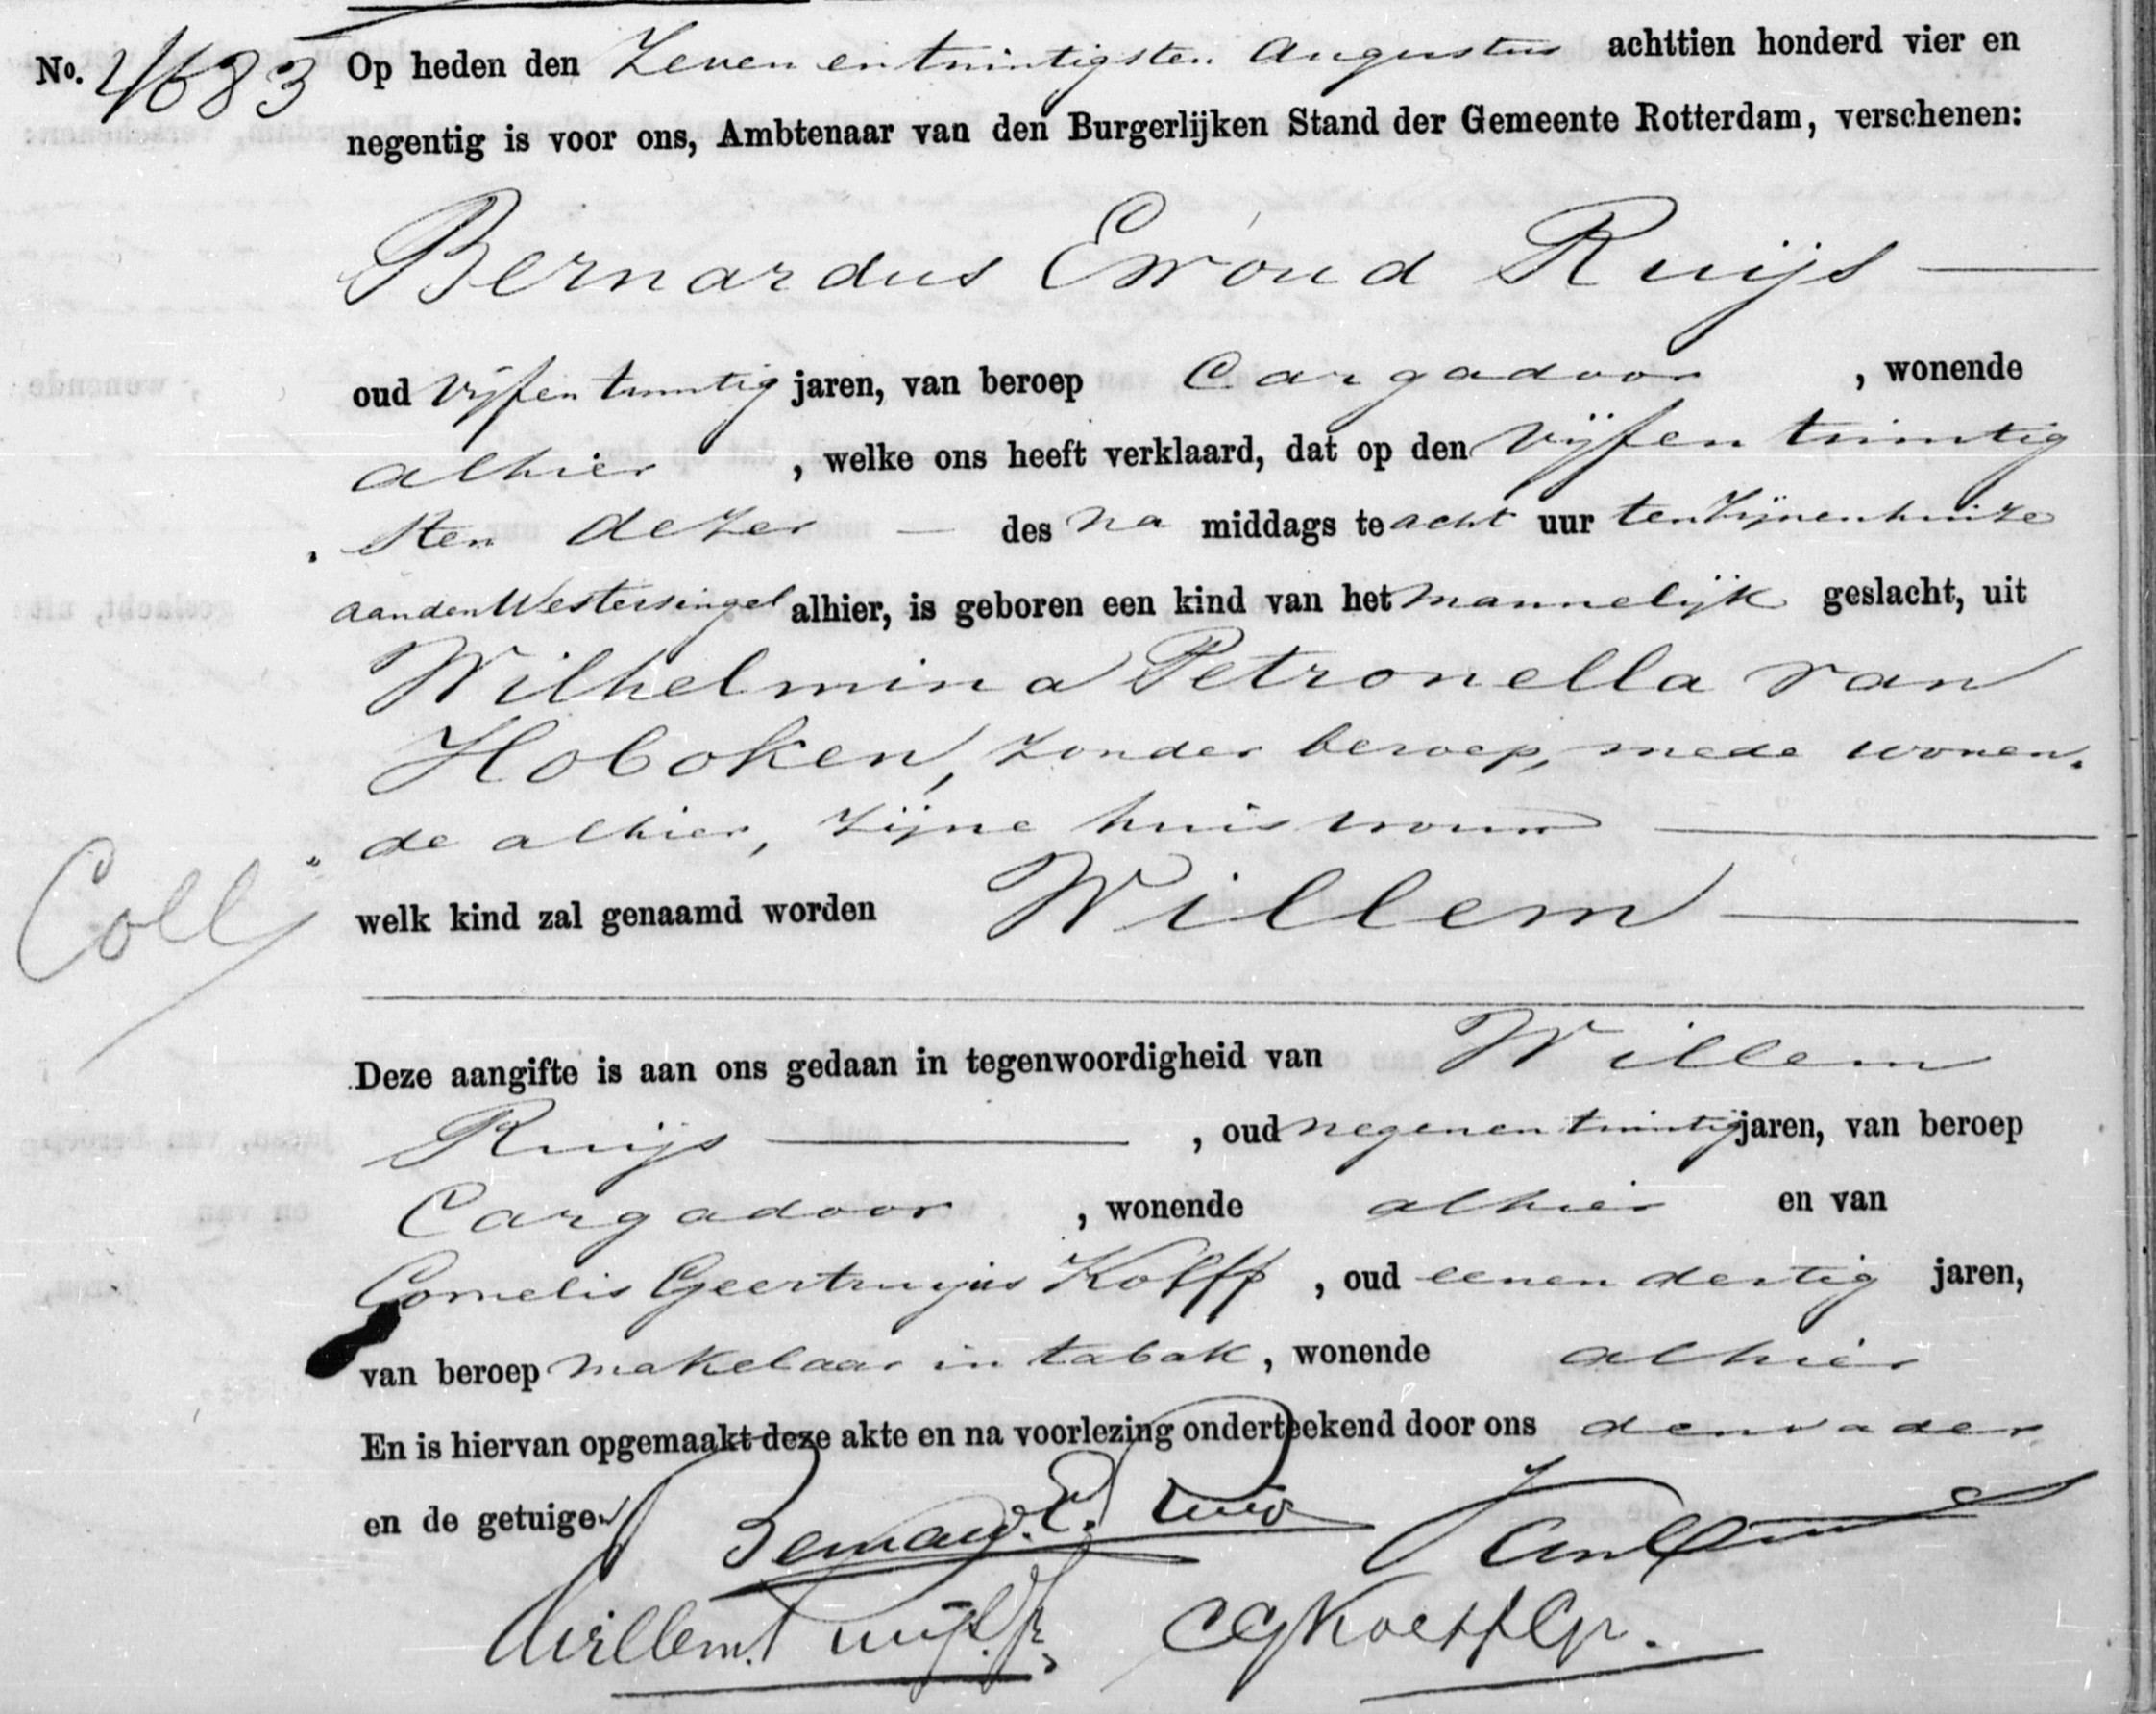 No. 4683 Op heden den Zeven en twintigsten Augustus achttien honderd vier en
negentig is voor ons, Ambtenaar van den Burgerlijken Stand der Gemeente Rotterdam, verschenen:
Bernardus Ewoud Ruijs
oud vijfen twintig jaren, van beroep Cargadoor, wonende
alhier, welke ons heeft verklaard, dat op den vijfen twintig
sten dezer des na middags te acht uur ten zijnen huize
aan den Westersingel alhier, is geboren een kind van het mannelijk geslacht, uit
Wilhelmina Petronella van
Hoboken, zonder beroep, mede wonen„
„de alhier, zijne huisvrouw
Coll welk kind zal genaamd worden Willem
Deze aangifte is aan ons gedaan in tegenwoordigheid van Willem
Ruijs, oud negenen twintig jaren, van beroep
Cargadoor, wonende alhier en van
Cornelis Geertruijus Kolff, oud eenen dertig jaren,
van beroep makelaar in tabak, wonende alhier
En is hiervan opgemaakt deze akte en na voorlezing onderteekend door ons den vader
en de getuigen
Bernard. E. Ruijs
Willem Ruijs Jr. CGKolff Gzn.